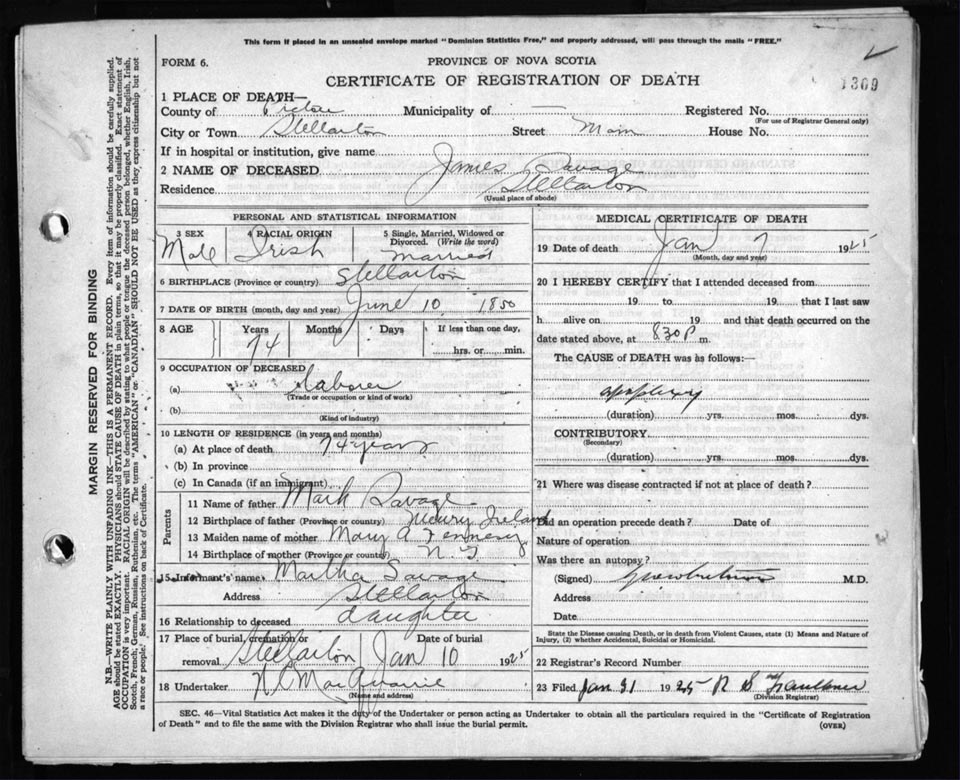 This form if placed in an unsealed envelope marked "Dominion Statistics Free," and properly addressed, will pass through the mails "FREE."
FORM 6. PROVINCE OF NOVA SCOTIA
CERTIFICATE OF REGISTRATION OF DEATH
1369
1 PLACE OF DEATH—
County of Pictou Municipality of — Registered No.
(For use of Registrar General only)
City or Town Stellarton Street Main House No.
If in hospital or institution, give name
2 NAME OF DECEASED James Savage
Residence Stellarton
(Usual place of abode)
PERSONAL AND STATISTICAL INFORMATION
3 SEX 4 RACIAL ORIGIN 5 Single, Married, Widowed or Divorced. (Write the word)
Male Irish Married
6 BIRTHPLACE (Province or country) Stellarton
7 DATE OF BIRTH (month, day and year) June 10 1850
8 AGE Years Months Days If less than one day,
74 hrs. or min.
9 OCCUPATION OF DECEASED
(a) Laborer
(Trade or occupation or kind of work)
(b)
(Kind of industry)
10 LENGTH OF RESIDENCE (in years and months)
(a) At place of death 74 years
(b) In province
(c) In Canada (if an immigrant)
Parents
11 Name of father Mark Savage
12 Birthplace of father (Province or country) Newry Ireland
13 Maiden name of mother Mary A
14 Birthplace of mother (Province or country)
15 Informant's name Martha Savage
Address Stellarton
16 Relationship to deceased daughter
17 Place of burial, cremation or removal Stellarton Date of burial Jan 10 1925
18 Undertaker
(Name and address)
MEDICAL CERTIFICATE OF DEATH
19 Date of death Jan 7 1925
(Month, day and year)
20 I HEREBY CERTIFY that I attended deceased from
19 to 19 that I last saw
h alive on 19 and that death occurred on the
date stated above, at 8.30 P m.
The CAUSE OF DEATH was as follows:—
apoplexy
(duration) yrs. mos. dys.
CONTRIBUTORY
(Secondary)
(duration) yrs. mos. dys.
21 Where was disease contracted if not at place of death?
Did an operation precede death? Date of
Nature of operation
Was there an autopsy?
(Signed) M.D.
Address
Date
State the Disease causing Death, or in death from Violent Causes, state (1) Means and Nature of Injury, (2) whether Accidental, Suicidal or Homicidal.
22 Registrar's Record Number
23 Filed Jan 31 1925 R B Faulkner
(Division Registrar)
SEC. 46—Vital Statistics Act makes it the duty of the Undertaker or person acting as Undertaker to obtain all the particulars required in the "Certificate of Registration
of Death" and to file the same with the Division Registrar who shall issue the burial permit. (OVER)
MARGIN RESERVED FOR BINDING
N.B.—WRITE PLAINLY WITH UNFADING INK—THIS IS A PERMANENT RECORD. Every item of information should be carefully supplied.
AGE should be stated EXACTLY. PHYSICIANS should STATE CAUSE OF DEATH in plain terms, so that it may be properly classified. Exact statement of
OCCUPATION is very important. RACIAL ORIGIN will be described by stating to what people or tongue the deceased person belonged, whether English, Irish,
Scotch, French, German, Russian, Ruthenian, etc. The terms "AMERICAN" or "CANADIAN" SHOULD NOT BE USED as they express citizenship but not
a race or people. See instructions on back of Certificate.